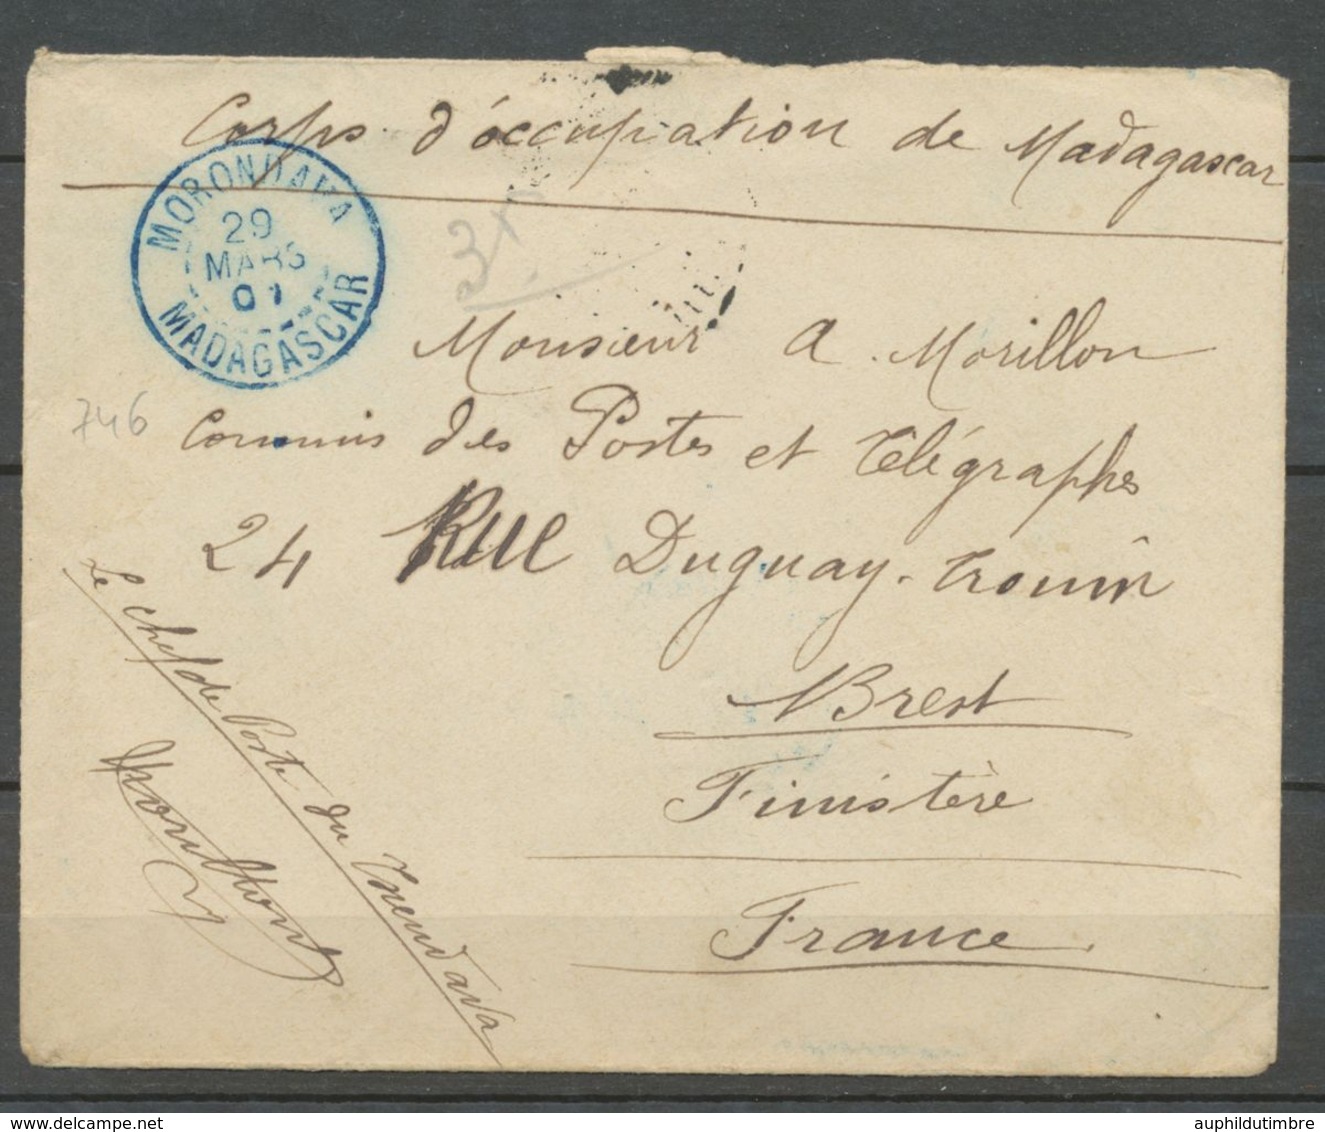 Corps d'óccupation de Madagascar
MORONDAVA
29
MARS
01
MADAGASCAR
Monsieur A. Morillon
746
Commis des Postes et Télégraphes
24 Rue Duguay-Trouin
Brest
Finistère
France
Le chef de Poste du
delcampe.net
auphildutimbre